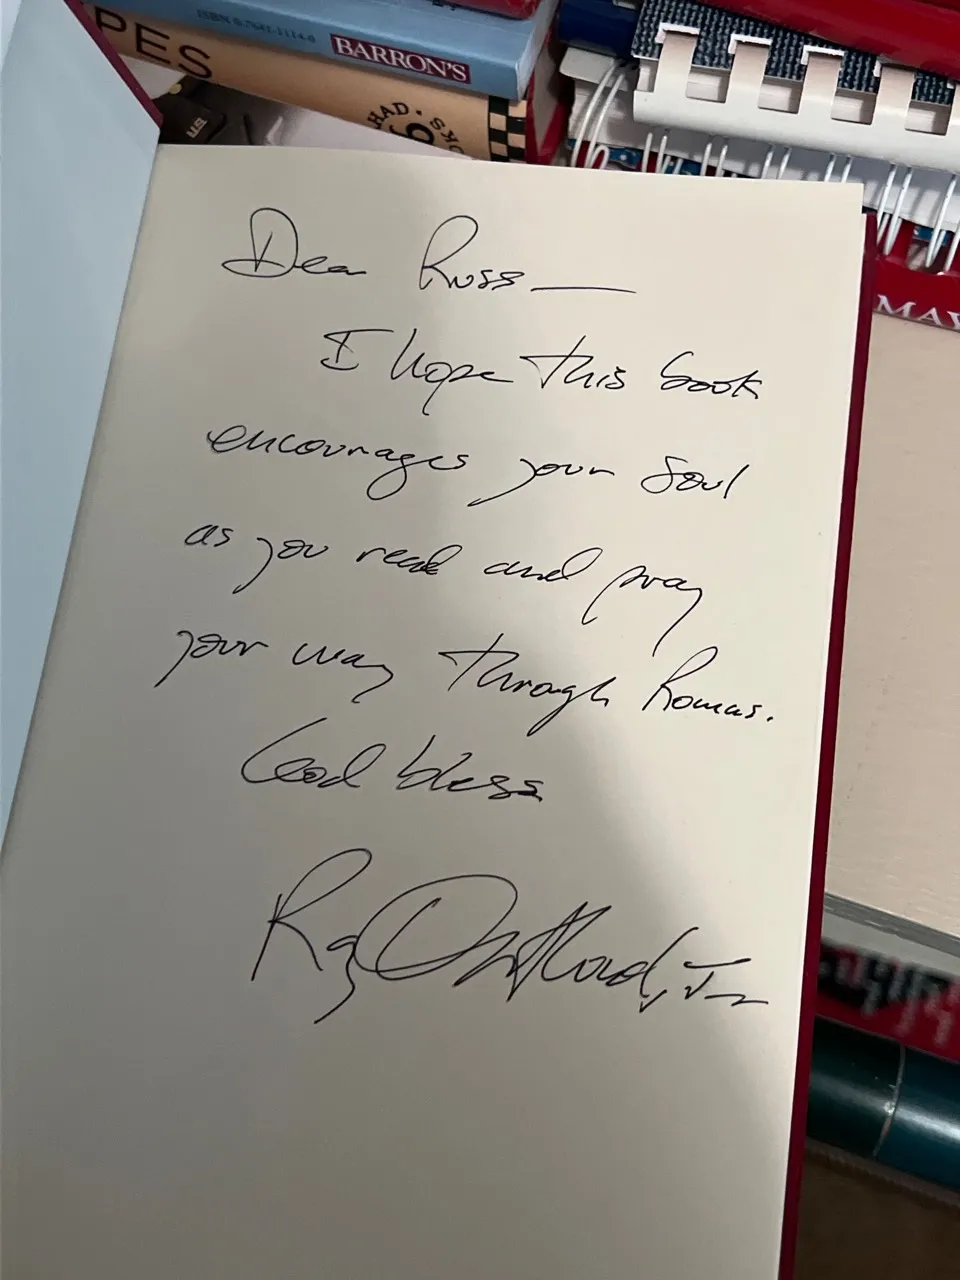 ISBN 0-7641-1114-0
BARRON'S
PES
HAD.
MAY
Dear Russ —
I hope this book
encourages your soul
as you read and pray
your way through Romans.
God bless
Ray Ortlund, Jr